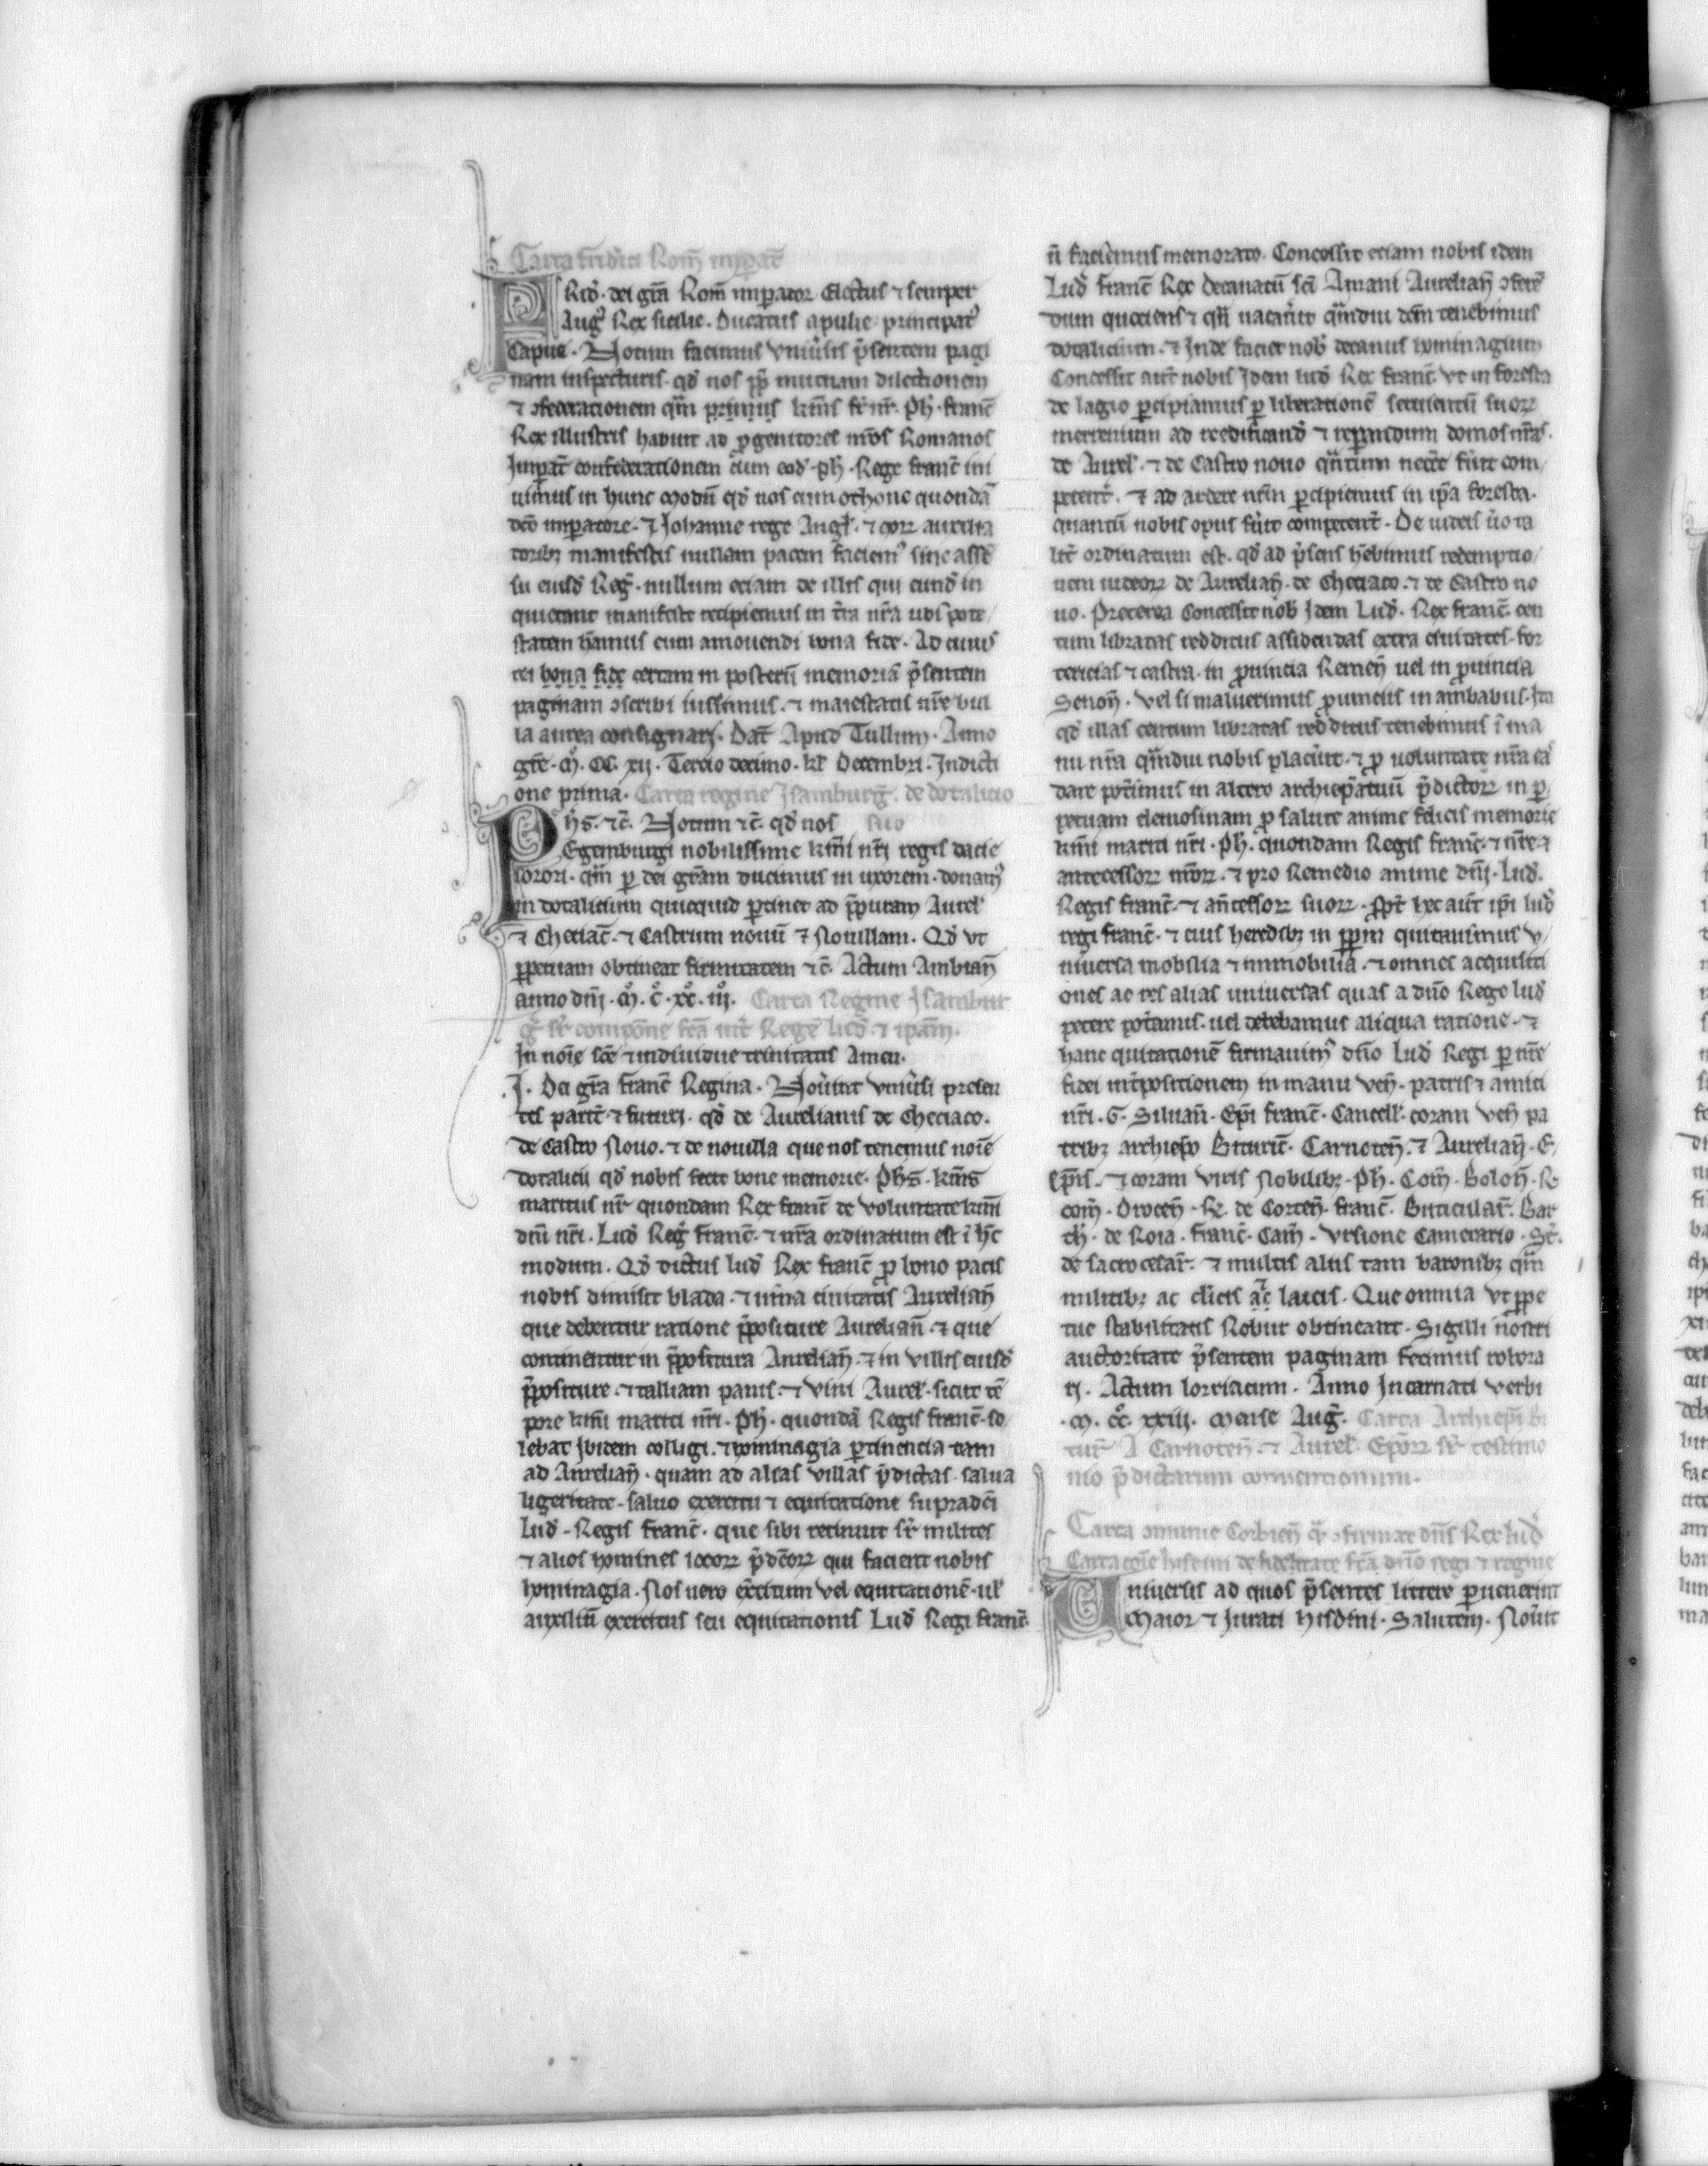 Carta frid'ici Rom̄ imꝑat̄
FRid'. dei gr̃a Rom̄ imꝑator Electus ⁊ semper
Aug' Rex sicilie. Ducatus apulie principat'
Capue. Notum facimus Vniu'sis p̄sentem pagi
nam inspecturis. qd' nos ꝓpt̄ mutuam dilectionem
⁊ ɔfederationem qm̄ primus km̄s fr̄ nr̄. Ph'. franc̄
Rex illustris habuit ad ꝓgenitores nr̄os Romanos
Imꝑat̄ confederationem cum eod' ph'. Rege franc̄ ini
uimus in hunc modū qd' nos cum othone quondā
dc̄o imꝑatore. ⁊ Johanne rege Angl'. ⁊ eoꝝ auxilia
toribꝫ manifestis nullam pacem faciem' sine assē
su eiusd' Reg'. nullum eciam de illis qui eund' in
quietant manifeste recipiemus in t̄ra nr̄a ubi pote
statem habemus eum amouendi bona fide. Ad cuius
rei bona fide certam in posterū memoriā p̄sentem
paginam ɔscribi iussimus. ⁊ maiestatis nr̄e bul
la aurea consignari. Dat̄ Apud Tullum. Anno
gr̄e. M̊. CC. xij. Tercio decimo. kl' Decembri. Indicti
one prima. Carta regine Isamburg'. de dotalicio
Ph's. ⁊c̄. Notum ⁊c̄. qd' nos suo
Egemburgi nobilissime km̄i nr̄i regis dacie
sorori. qm̄ ꝑ dei gr̃am ducimus in uxorem. donam'
in dotalicium quicquid ꝑtinet ad p̄posituram Aurel'
⁊ Checiac̄. ⁊ Castrum nouū ⁊ Nouillam. Qd' vt
ꝑpetuam obtineat firmitatem ⁊c̄. Actum Ambian̄
anno dn̄i. M̊. c̊. xc̊. iij̊. Carta Regine Isambur
g'. sr̄ compone fc̄a int̄ Regē lud' ⁊ ipam̄.
In noīe sc̄e ⁊ indiuidue trinitatis Amen.
.J. Dei gr̃a franc̄ Regina. Nou'int vniu'si presen
tes parit̄ ⁊ futuri. qd' de Aurelianis de Checiaco.
de Castro Nouo. ⁊ de nouilla que nos tenemus noīe
dotalicii qd' nobis fecit bone memorie. Ph's. km̄s
maritus nr̄ quondam Rex franc̄ de voluntate km̄i
dn̄i nr̄i. Lud' Reg' franc̄. ⁊ nr̄a ordinatum est ī hc̄
modum. Qd' dictus lud' Rex franc̄ ꝓ bono pacis
nobis dimisit blada. ⁊ uina ciuitatis Aurelian̄
que debentur ratione p̄positure Aurelian̄. ⁊ que
continentur in p̄positura Aurelian̄. ⁊ in villis eiusd'
p̄positure. ⁊ talliam panis. ⁊ vini Aurel'. sicut tē
pore km̄i mariti nr̄i. Ph'. quondā Regis franc̄. so
lebat Ibidem colligi. ⁊ hominagia ꝑtinencia tam
ad Aurelian̄. quam ad alias villas p̄dictas. salua
ligeitate. saluo exercitu ⁊ equitatione supradc̄i
Lud'. Regis franc̄. que sibi retinuit sr̄ milites
⁊ alios homines locoꝝ p̄dc̄oꝝ qui facient nobis
hominagia. Nos uero ex̄citum vel equitationē. ul'
auxiliū exercitus seu equitationis Lud' Regi franc̄.
n̄ faciemus memorato. Concessit eciam nobis idem
Lud' franc̄ Rex decanatū sc̄i Aniani Aurelian̄ ɔferē
dum quociens ⁊ qn̄ uacau'it qm̄diu dc̄m tenebimus
dotalicium. ⁊ Inde faciet nob' decanus hominagium
Concessit aut̄ nobis Idem lud' Rex franc̄. vt in foresta
de lagio ꝑcipiamus ꝑ liberationē seruientū suoꝝ
merrenium ad reedificand' ⁊ reꝑandum domos nr̄as.
de Aurel'. ⁊ de Castro nouo qn̄tum necc̄e fu'it com
petent̄. ⁊ ad ardere nr̄m ꝑcipiemus in ip̄a foresta.
quantū nobis opus fu'it competent̄. De iudeis u'o ta
lit̄ ordinatum est. qd' ad p̄sens hēbimus redemptio
nem iudeoꝝ de Aurelian̄. de Checiaco. ⁊ de Castro no
uo. Preterea Concessit nob' Idem Lud'. Rex franc̄. cen
tum libratas redditus assidendas extra ciuitates. for
tericias ⁊ castra. in ꝓuincia Remen̄ uel in ꝓuincia
Senon̄. vel si maluerimus ꝓuinciis in ambabus. Ita
qd' illas centum libratas redditus tenebimus ī ma
nu nr̄a qm̄diu nobis placu'it. ⁊ ꝓ uoluntate nr̄a eas
dare pot̄imus in altero archiep̄atuū p̄dictoꝝ in ꝑ
petuam elemosinam ꝓ salute anime felicis memorie
km̄i mariti nr̄i. Ph'. quondam Regis franc̄. ⁊ nr̄e ⁊
antecessoꝝ nr̄oꝝ. ⁊ pro Remedio anime dn̄i. Lud'.
Regis franc̄. ⁊ an̄cessoꝝ suoꝝ. ꝓpt̄ hec aut̄ ip̄i lud'
regi franc̄. ⁊ eius heredibꝫ in ꝑpm quitauimus v
niuersa mobilia ⁊ immobilia. ⁊ omnes acquisiti
ones ac res alias uniuersas quas a dn̄o Rege lud'
petere pot̄amus. uel debebamus aliqua ratione. ⁊
hanc quitationē firmauim' dn̄o lud' Regi ꝑ nr̄e
fidei int̄positionem in manu ven̄. patris ⁊ amici
nr̄i. G. Siluan̄. Ep̄i franc̄. Cancell'. coram ven̄ pa
tribꝫ archiep̄o Bituric̄. Carnoten̄. ⁊ Aurelian̄. E
ep̄is. ⁊ coram viris Nobilibꝫ. Ph'. Com̄. Bolon̄. R.
com̄. Drocen̄. R. de Corten̄. franc̄. Buticular̄. Bar
th'. de Roia. franc̄. Cam̄. Vrsione Camerario. St̄.
de sacrocesar̄. ⁊ multis aliis tam baronibꝫ qm̄
militibꝫ ac cl'icis ac̄ laicis. Que omnia vt ꝑpe
tue stabilitatis Robur obtineant. Sigilli nostri
auctoritate p̄sentem paginam fecimus robora
ri. Actum lorriacum. Anno Incarnati verbi
.M. cc̊. xxiij. mense Aug'. Carta Archiep̄i Bi
tur̄. A Carnoten̄. ⁊ Aurel'. Ep̄oꝝ sr̄ testimo
nio p̄dictarum conuentionum.
Carta ɔmunie Corbien̄ qm̄ ɔfirmat dn̄s Rex lud'
Carta cōie hisdini de fidelitate fc̄a dn̄o regi ⁊ regine
Uniuersis ad quos p̄sentes littere ꝑuenerint
Maior ⁊ Iurati hisdini. Salutem. Nou'it